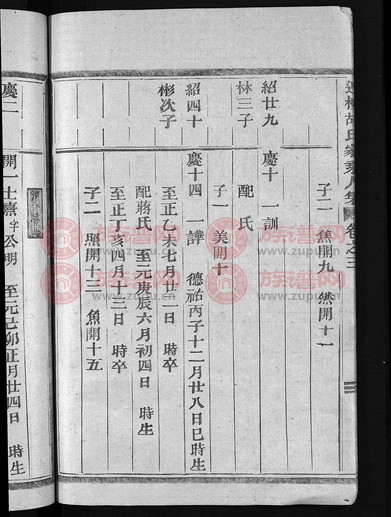 胡氏家乘
卷之三
子二 焦開九 然開十一
紹廿九 慶十一 訓
林三子 配 氏
子一 美開十
紹四十 慶十四 一譁 德祐丙子十二月廿八日巳時生
彬次子 至正乙未七月廿二日 時卒
配蔣氏 至元庚辰六月初四日 時生
至正丁亥四月十三日 時卒
子二 照開十三 焦開十五
慶二 開一 士熹字公明 至元己卯正月廿四日 時生
族谱网
www.zupu.cn